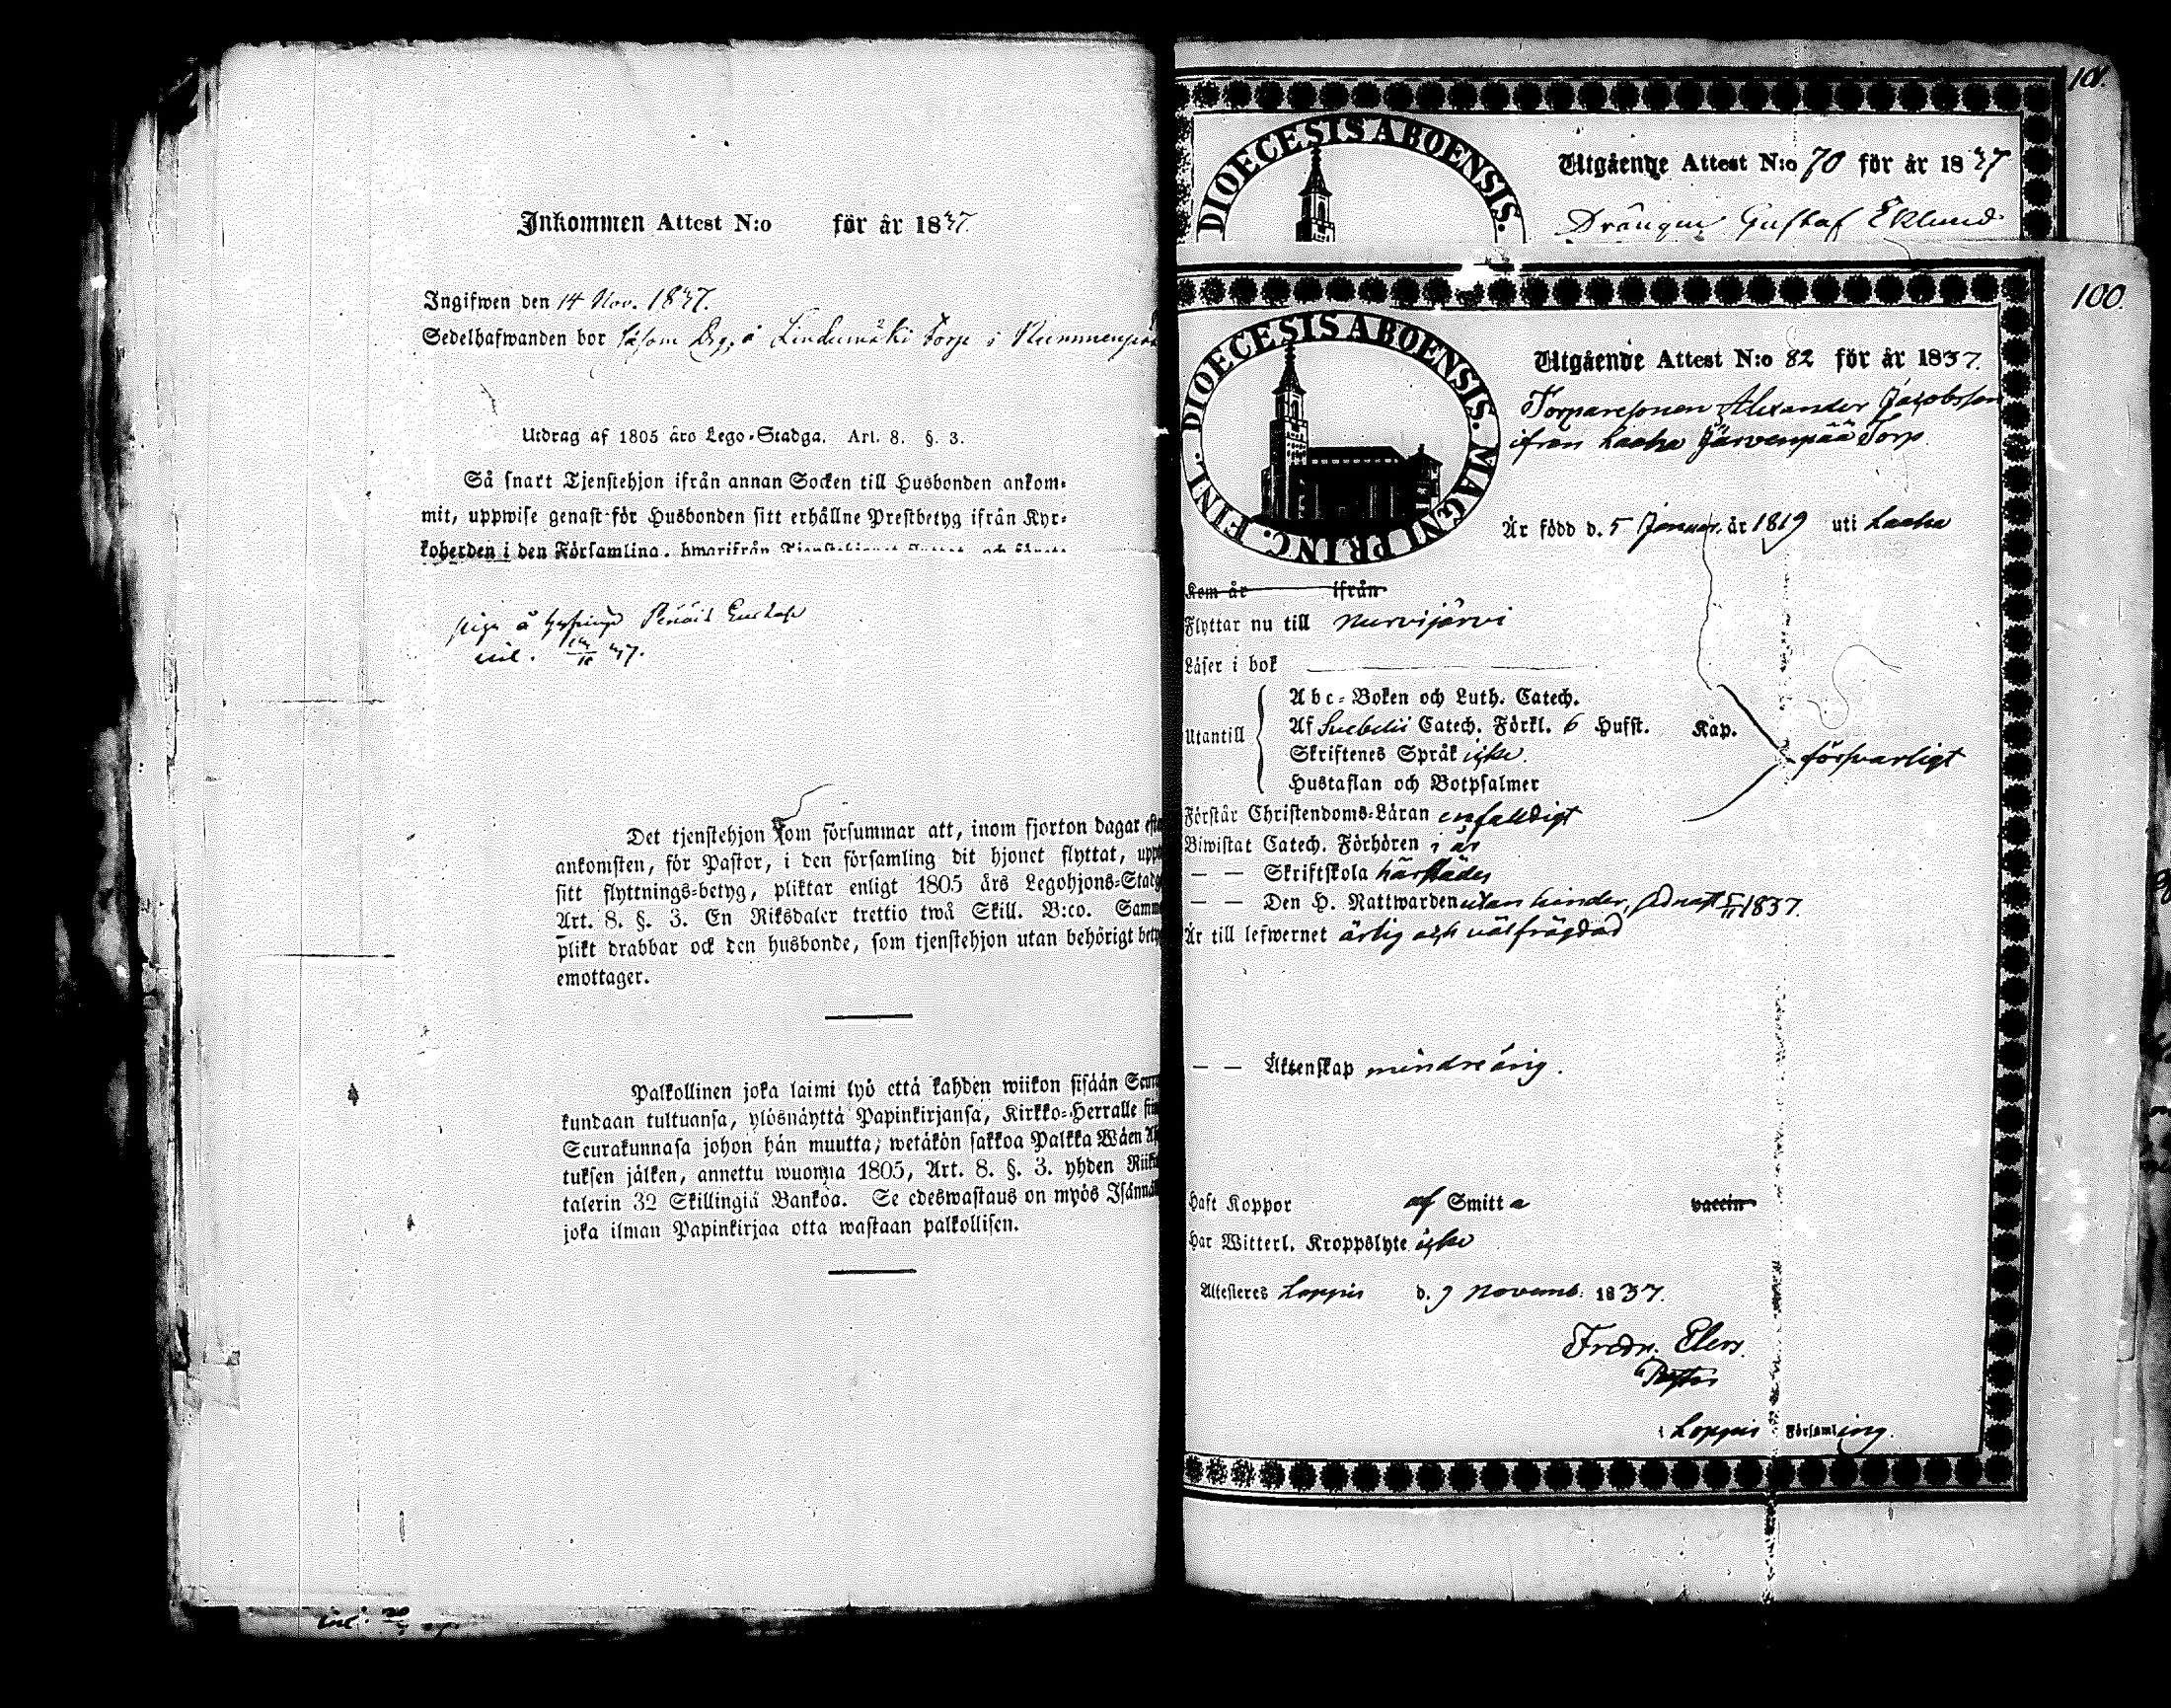 Inkommen Attest N:o för år 1837.
Ingifwen den 14 Nov. 1837.
Sedelhafwanden bor såsom Drg. å Lindumäki Torp i
Utdrag af 1805 års Lego-Stadga. Art. 8. §. 3.
Så snart Tjenstehjon ifrån annan Socken till Husbonden ankom-
mit, uppwise genast för Husbonden sitt erhållne Prestbetyg ifrån Kyr-
koherden i den Församling, hwarifrån Tjenstehjonet
pige å
inl. 37.
Det tjenstehjon som försummar att, inom fjorton dagar
ankomsten, för Pastor, i den församling dit hjonet flyttat,
sitt flyttnings-betyg, pliktar enligt 1805 års Legohjons-
Art. 8. §. 3. En Riksdaler trettio twå Skill. B:co.
plikt drabbar ock den husbonde, som tjenstehjon utan behörigt
emottager.
Palkollinen joka laimi lyö että kahden wiikon sisään
kundaan tultuansa, ylösnäyttä Papinkirjansa, Kirkko-Herralle
Seurakunnasa johon hän muutta, wetäkön sakkoa Palkka Wäen
tuksen jälken, annettu wuonna 1805, Art. 8. §. 3. yhden
talerin 32 Skillingiä Bankoa. Se edeswastaus on myös
joka ilman Papinkirjaa otta wastaan palkollisen.
inl.
101.
DIOECESIS ABOENSIS.
Utgående Attest N:o 70 för år 1837
Drängen Gustaf Eklund
100.
DIOECESIS ABOENSIS. MAGNI PRINC. FINL.
Utgående Attest N:o 82 för år 1837.
Torparesonen Alexander Jacobsson
ifrån Laaha Järvenpää Torp
Är född d. 5 Januar. år 1819 uti Laaha
Kom år ifrån
Flyttar nu till Nurvijärvi
Läser i bok
Abc-Boken och Luth. Catech.
Utantill Af Svebelii Catech. Förkl. 6 Hufst. Kap.
Skriftenes Språk icke.
Hustaflan och Botpsalmer
försvarligt
Förstår Christendoms-Läran enfaldigt
Biwistat Catech. Förhören i år
— — Skriftskola härstädes
— — Den H. Nattwarden utan hinder, sednast 5/11 1837.
Är till lefwernet ärlig och välfrägdad
— — Äktenskap mindreårig.
Haft Koppor af Smitta vaccin
Har Witterl. Kroppslyte icke
Attesteres Loppis d. 9 Novemb: 1837.
Fredr. Elers.
Pastor
i Loppis Församling.